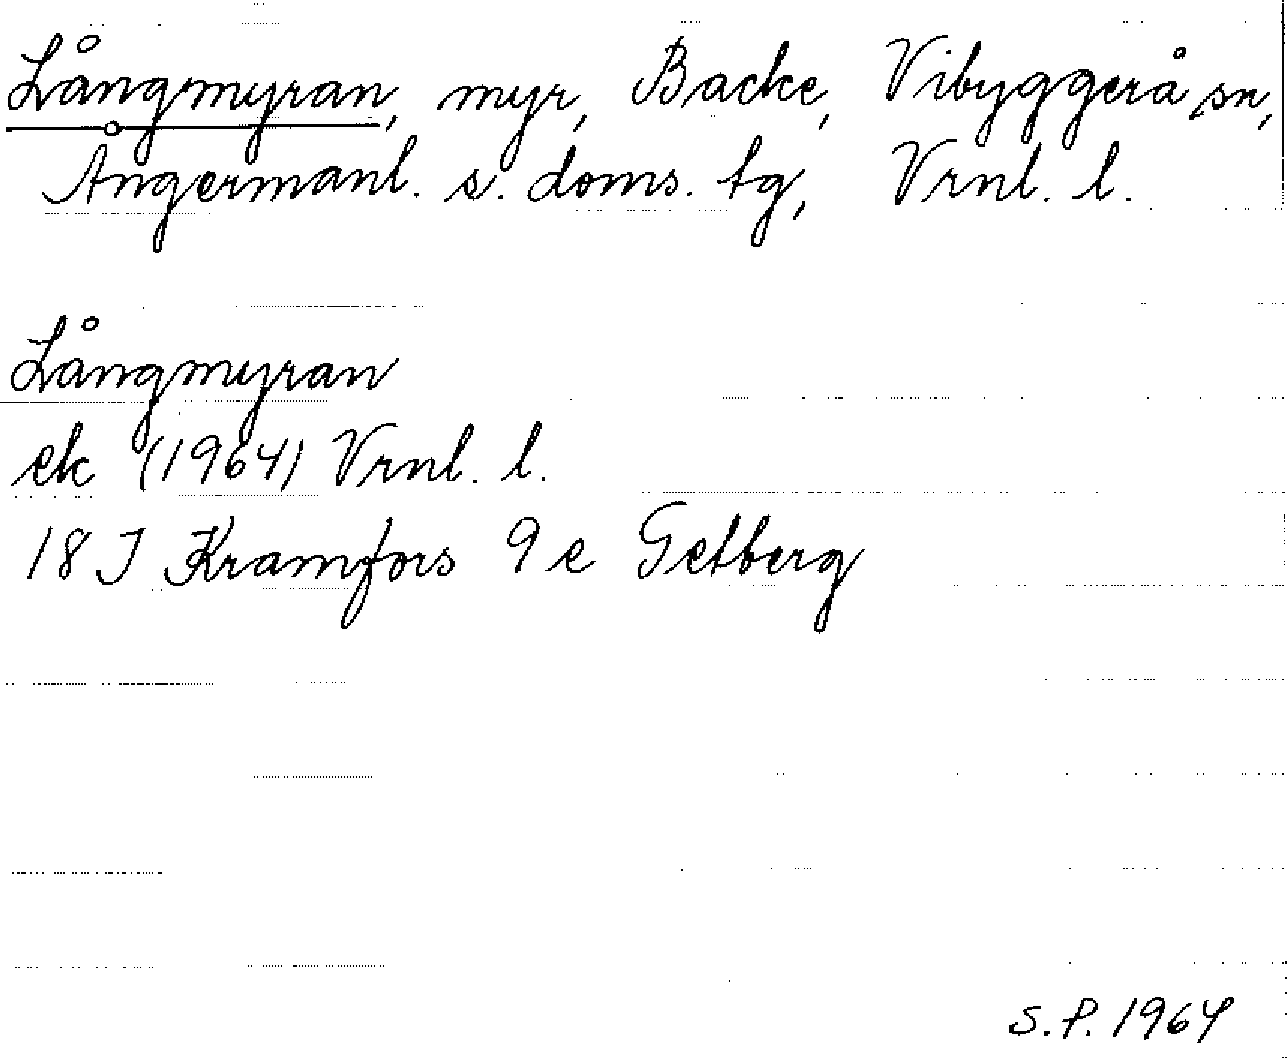 Långmyran, myr, Backe, Vibyggerå sn,
Ångermanl. s. doms. tg, Vrnl. l.
Långmyran
ek (1964) Vrnl. l.
18 J Kramfors 9 e Getberg
S.P. 1964